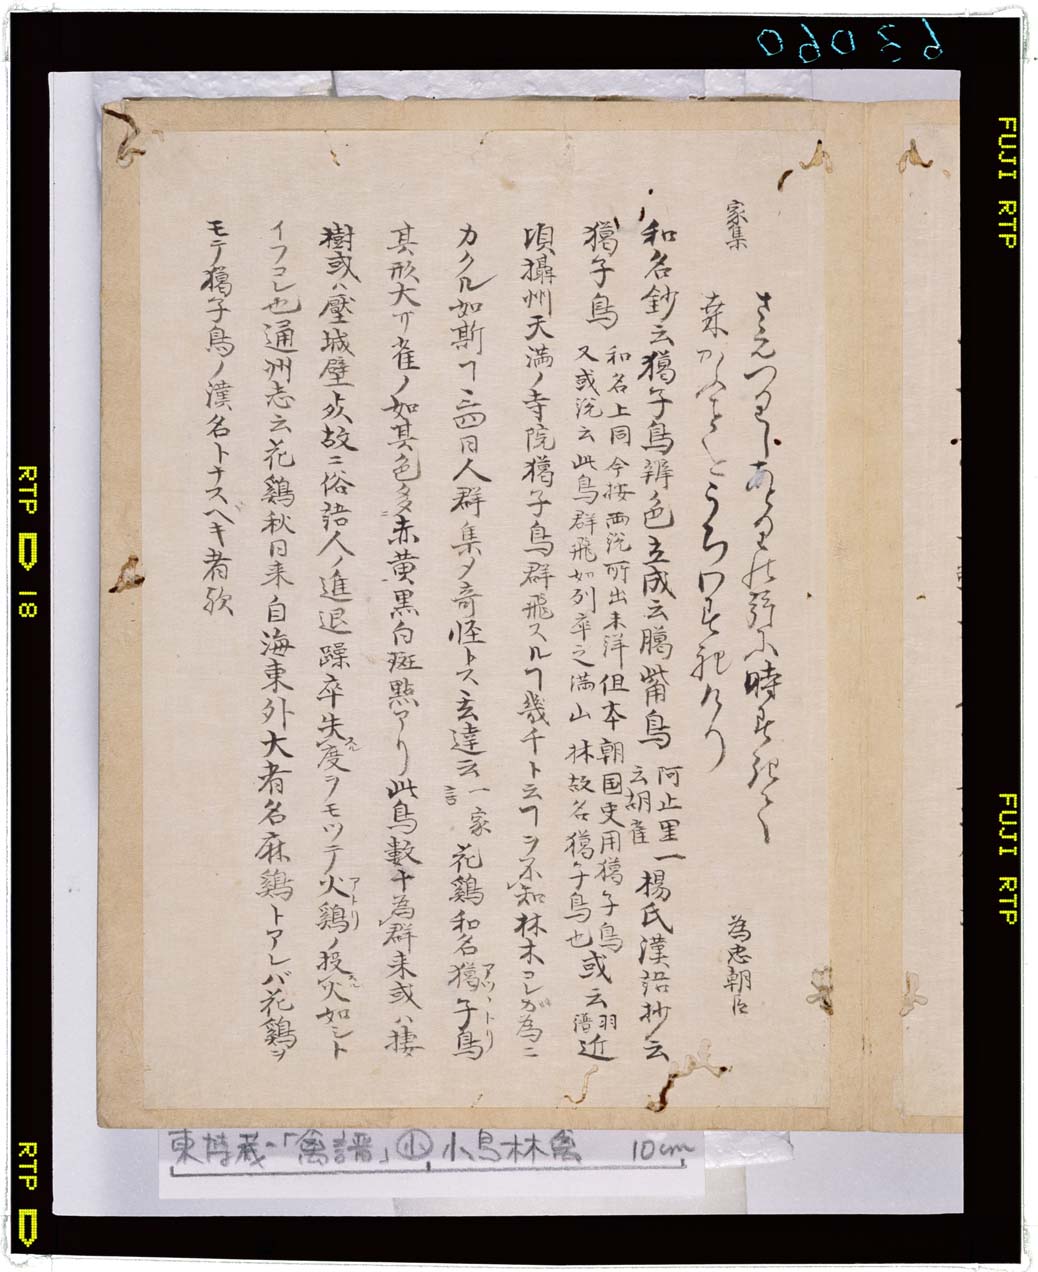 家集
為忠朝臣
和名鈔云獦子鳥辨色立成云臈觜鳥 阿止里 云胡雀 一楊氏漢語抄云
獦子鳥 和名上同今按両説所出未詳但本朝国史用獦子鳥 又或説云此鳥群飛如列卒之満山林故名獦子鳥也 或云 羽譜 近
頃攝州天満ノ寺院獦子鳥群飛スルヿ幾千ト云ヿヲ不知林木コレガ為ニ
カクル如斯ヿ三四日人群集メ奇怪トス玄達云 一家言 花鷄和名獦子鳥 アツトリ
其形大サ雀ノ如其色多赤黄黒白斑點アリ此鳥數十為群来或ハ棲
樹或ハ壓城壁々故ニ俗語人ノ進退躁卒失度スルヲモツテ火鷄アトリノ投火スル如シト
イフコレ也通州志云花鷄秋日来自海東外大者名麻鷄トアレバ花鷄ヲ
モテ獦子鳥ノ漢名トナスベキ者歟
東博蔵「禽譜」小 小鳥林禽 10cm
62060
FUJI RTP
FUJI RTP
RTP 18
RTP